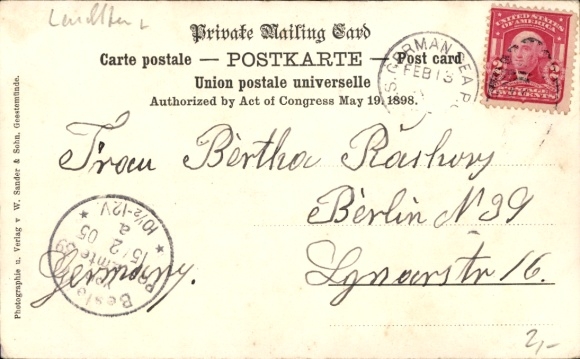 Private Mailing Card
Carte postale — POSTKARTE — Post card
Union postale universelle
Authorized by Act of Congress May 19. 1898.
UNITED STATES OF AMERICA
U.S. GERMAN SEA P.
FEB 13
Frau Bertha
Berlin N 39
16.
Germany.
Beste
39
15 2 05
a
10½-12V.
Photographie u. Verlag v W. Sander & Sohn, Geestemünde.
2,-